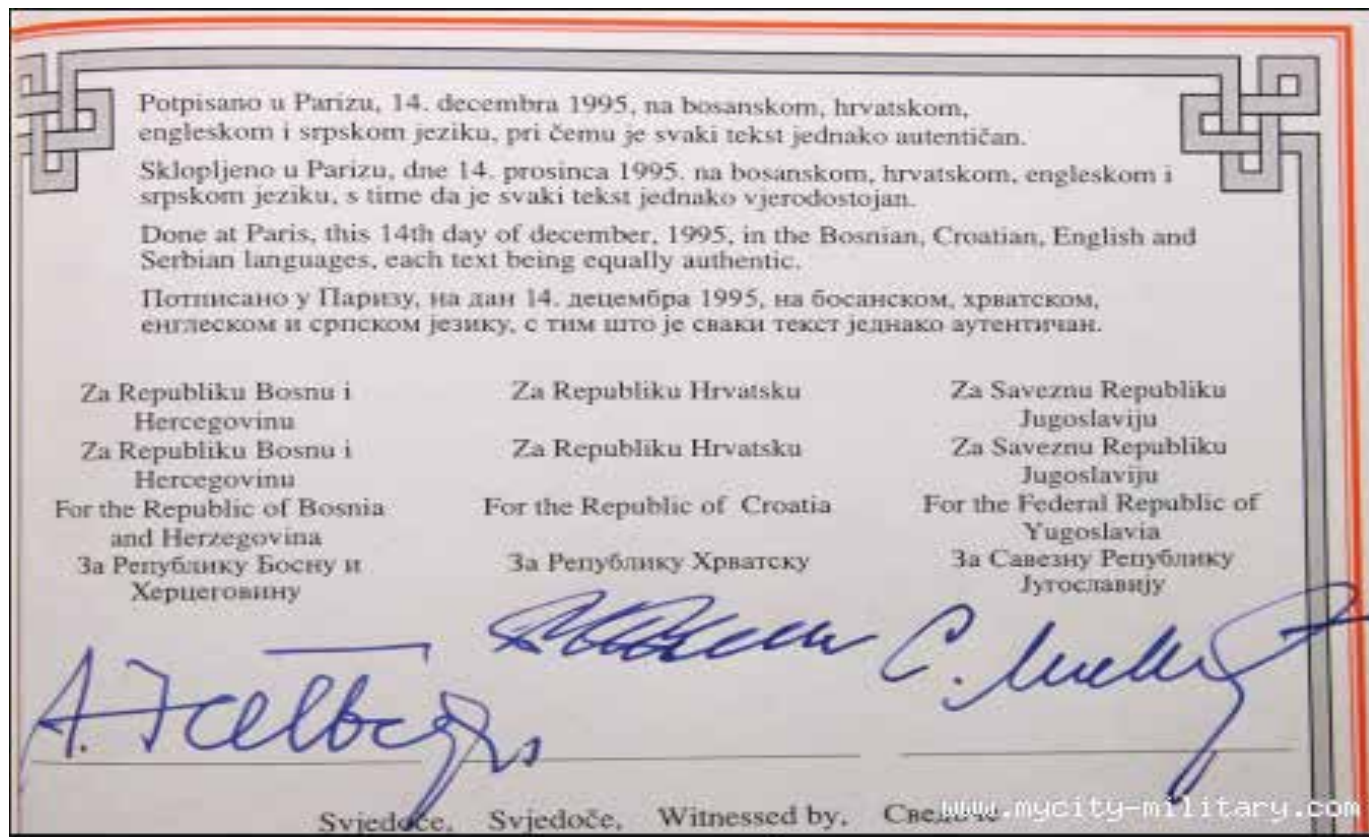 Potpisano u Parizu, 14. decembra 1995, na bosanskom, hrvatskom,
engleskom i srpskom jeziku, pri čemu je svaki tekst jednako autentičan.
Sklopljeno u Parizu, dne 14. prosinca 1995. na bosanskom, hrvatskom, engleskom i
srpskom jeziku, s time da je svaki tekst jednako vjerodostojan.
Done at Paris, this 14th day of december, 1995, in the Bosnian, Croatian, English and
Serbian languages, each text being equally authentic.
Потписано у Паризу, на дан 14. децембра 1995, на босанском, хрватском,
енглеском и српском језику, с тим што је сваки текст једнако аутентичан.
Za Republiku Bosnu i
Hercegovinu
Za Republiku Bosnu i
Hercegovinu
For the Republic of Bosnia
and Herzegovina
За Републику Босну и
Херцеговину
Za Republiku Hrvatsku
Za Republiku Hrvatsku
For the Republic of Croatia
За Републику Хрватску
Za Saveznu Republiku
Jugoslaviju
Za Saveznu Republiku
Jugoslaviju
For the Federal Republic of
Yugoslavia
За Савезну Републику
Југославију
Svjedoče, Svjedoče, Witnessed by, Сведоче
www.mycity-military.com